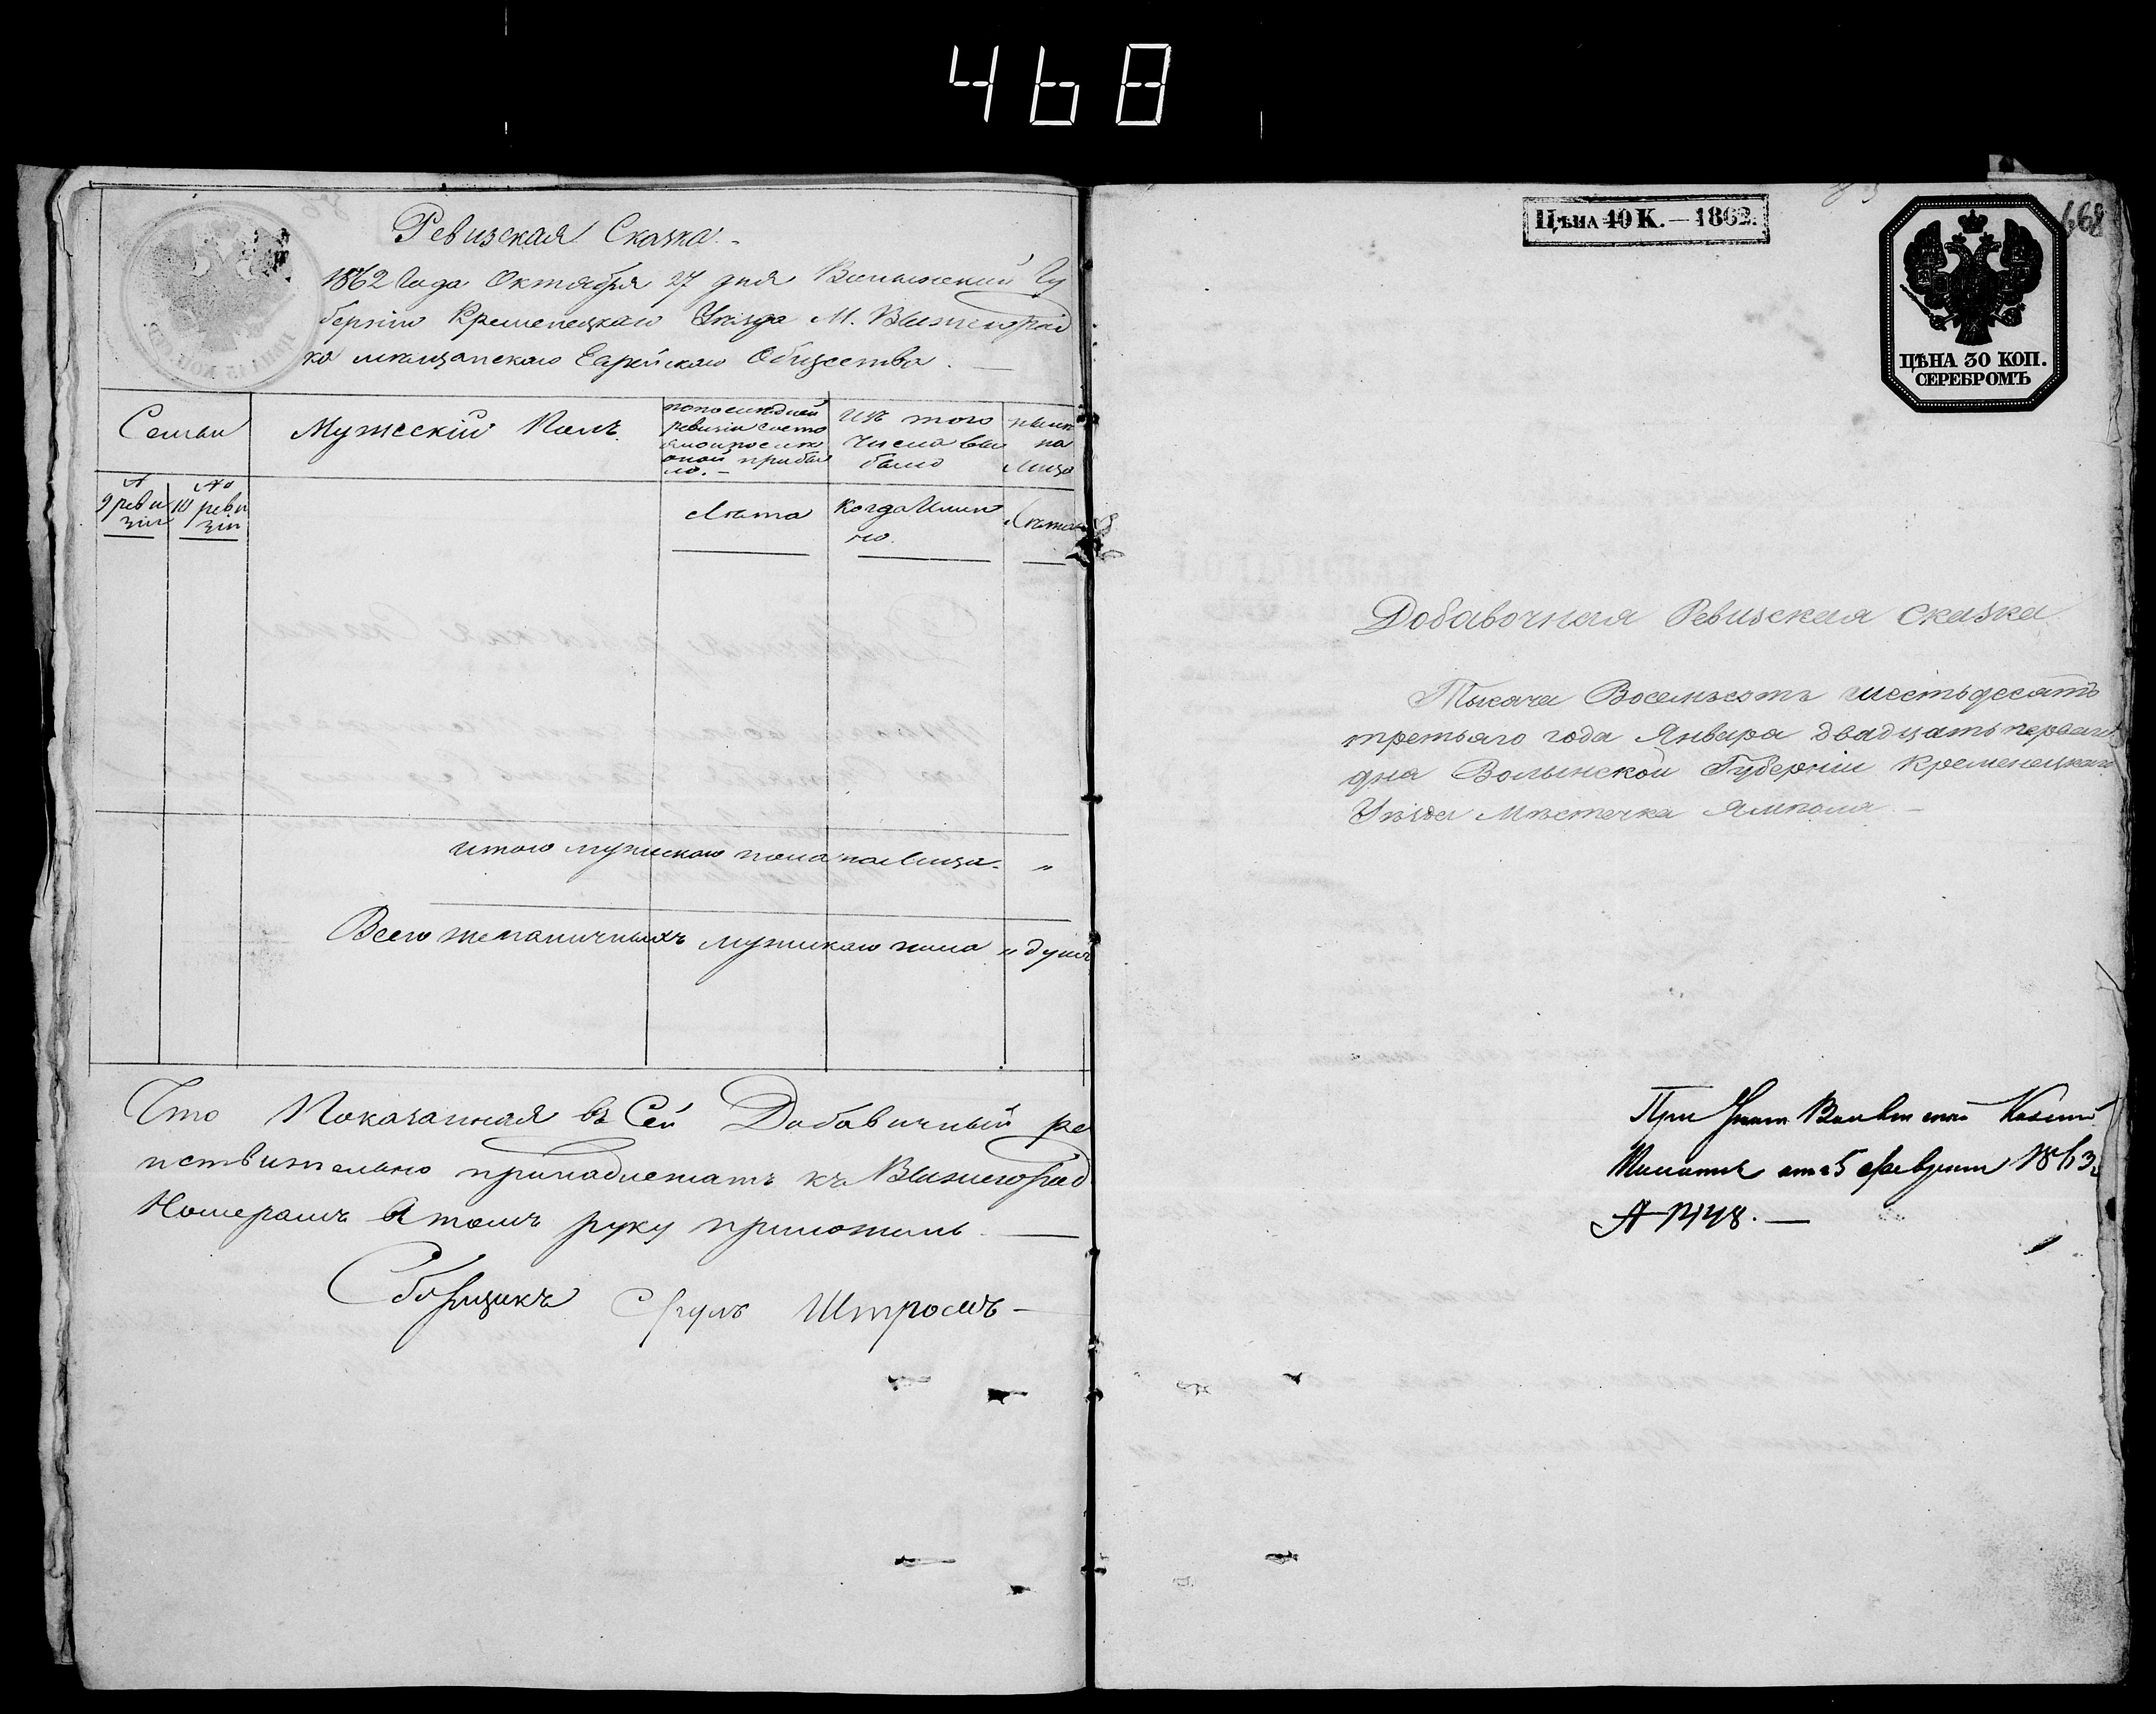 468
Ревизская Сказка.
1862 Года Октября 27 дня Волынский Гу
берніи Кременецкаго Уѣзда М. Вышегрод
ко мѣщанскаго Еврейскаго Общества.
Семьи
Мужескій Полъ
по последней
ревизіи состо
яло и после
оной прибы
ло.
Изъ того
числа вы
было
ныне
на
Лицо
№
9 реви
зіи
№
10 реви
зіи
Лѣта
Когда Имен
но.
Лѣта
Итого мужескаго пола на Лицо - "
Всего мужескаго пола " душъ
Что Показанная въ Сей Добавичный ре
йствительно принадлежатъ къ Вышегрод
Номерамъ в томъ руку приложилъ
Сборщикъ Сруль Штромъ
Цѣна 10 К. — 1862.
668
ЦѢНА 30 КОП.
СЕРЕБРОМЪ
Добавочная Ревизская Сказка
Тысяча Восемьсотъ шестьдесятъ
третьяго года Января двадцать перваго
дня Волынской Губерніи Кременецкаго
Уѣзда Мѣстечка Ямполя
При Указе Волынской Казенной
Палаты от 5 февраля 1863
№ 1448.